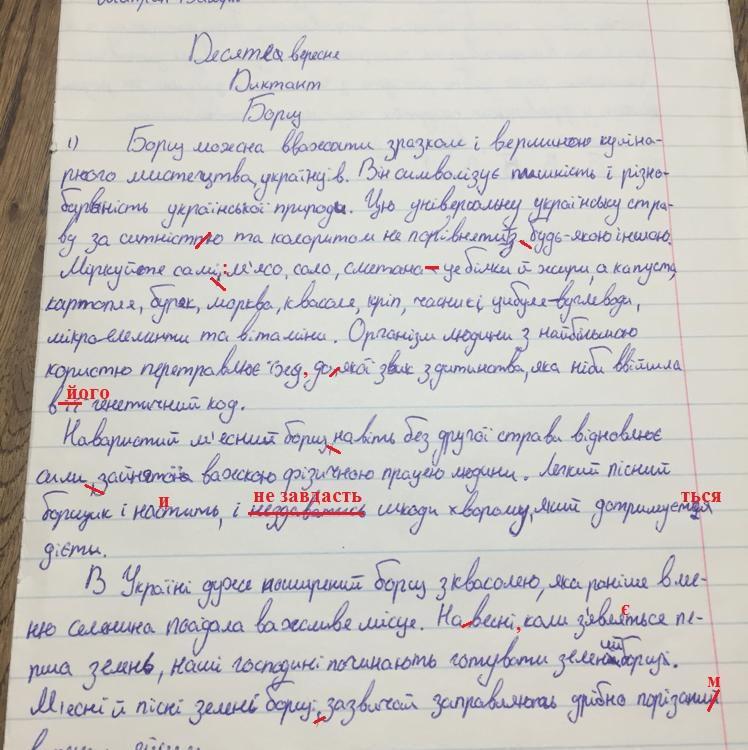 Десяте вересня
Диктант
Борщ
1) Борщ можна вважати зразком і вершиною куліна-
рного мистецтва, українців. Він символізує пишність і різно-
барвність української природи. Цю універсальну українську стра-
ву за ситністтю та колоритом не порівняти із будь-якою іншою.
Міркуйте самі: м'ясо, сало, сметана – це білки й жири, а капуста,
картопля, буряк, морква, квасоля, кріп, часник і цибуля – вуглеводи,
мікроелементи та вітаміни. Організм людини з найбільшою
користю перетравлює їжу, до якої звик з дитинства, яка ніби ввійшла
його
в її генетичний код.
Наваристий м'ясний борщ навіть без другої страви відновлює
сили, зайнятої важкою фізичною працею людини. Легкий пісний
и не завдасть ться
борщик і наситить, і шкоди хворому, який дотримується
дієти.
В Україні дуже поширений борщ з квасолею, яка раніше в ме-
ню селянина посідала важливе місце. На весні, коли з'являється пе-
є
рша зелень, наші господині починають готувати зелений борщ.
М'ясні й пісні зелені борщі, зазвичай заправляють дрібно порізаним
м